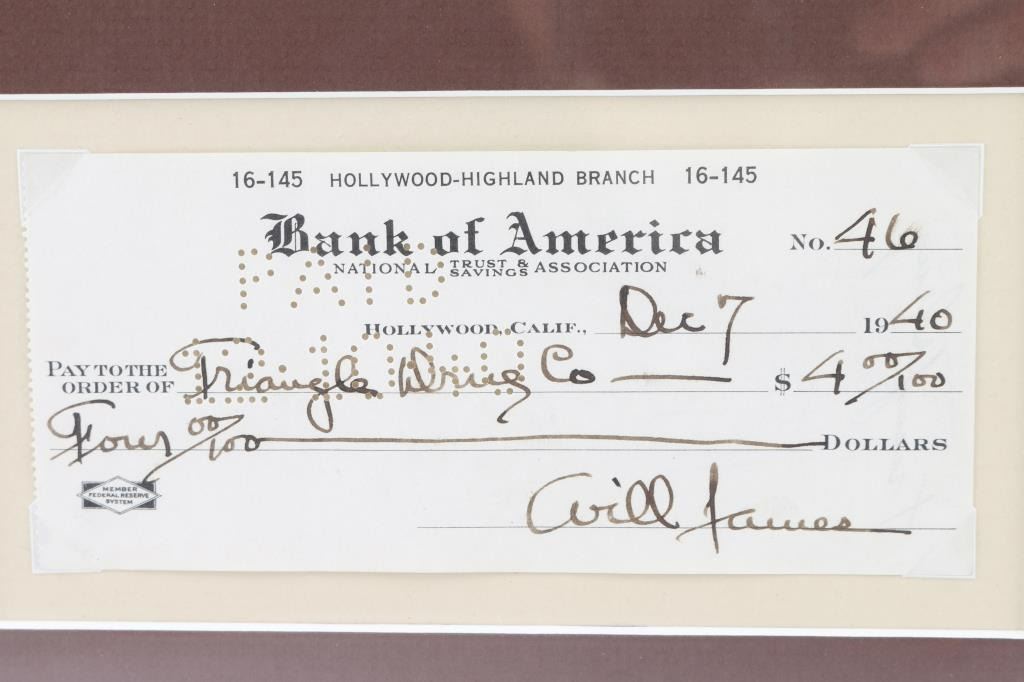 16-145 HOLLYWOOD-HIGHLAND BRANCH 16-145
Bank of America No. 46
NATIONAL TRUST & SAVINGS ASSOCIATION
PAID
HOLLYWOOD, CALIF., Dec 7 1940
PAY TO THE ORDER OF Triangle Drug Co $ 4 00/100
Four 00/100 DOLLARS
MEMBER
FEDERAL RESERVE
SYSTEM
Will James